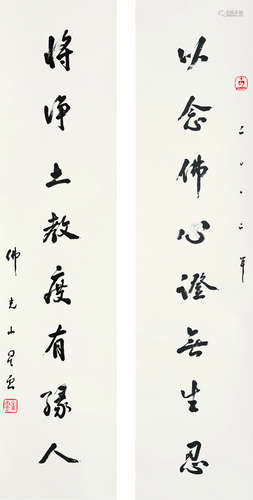 以念佛心證無生忍
二〇〇二年
将净土教度有缘人
佛光山星雲